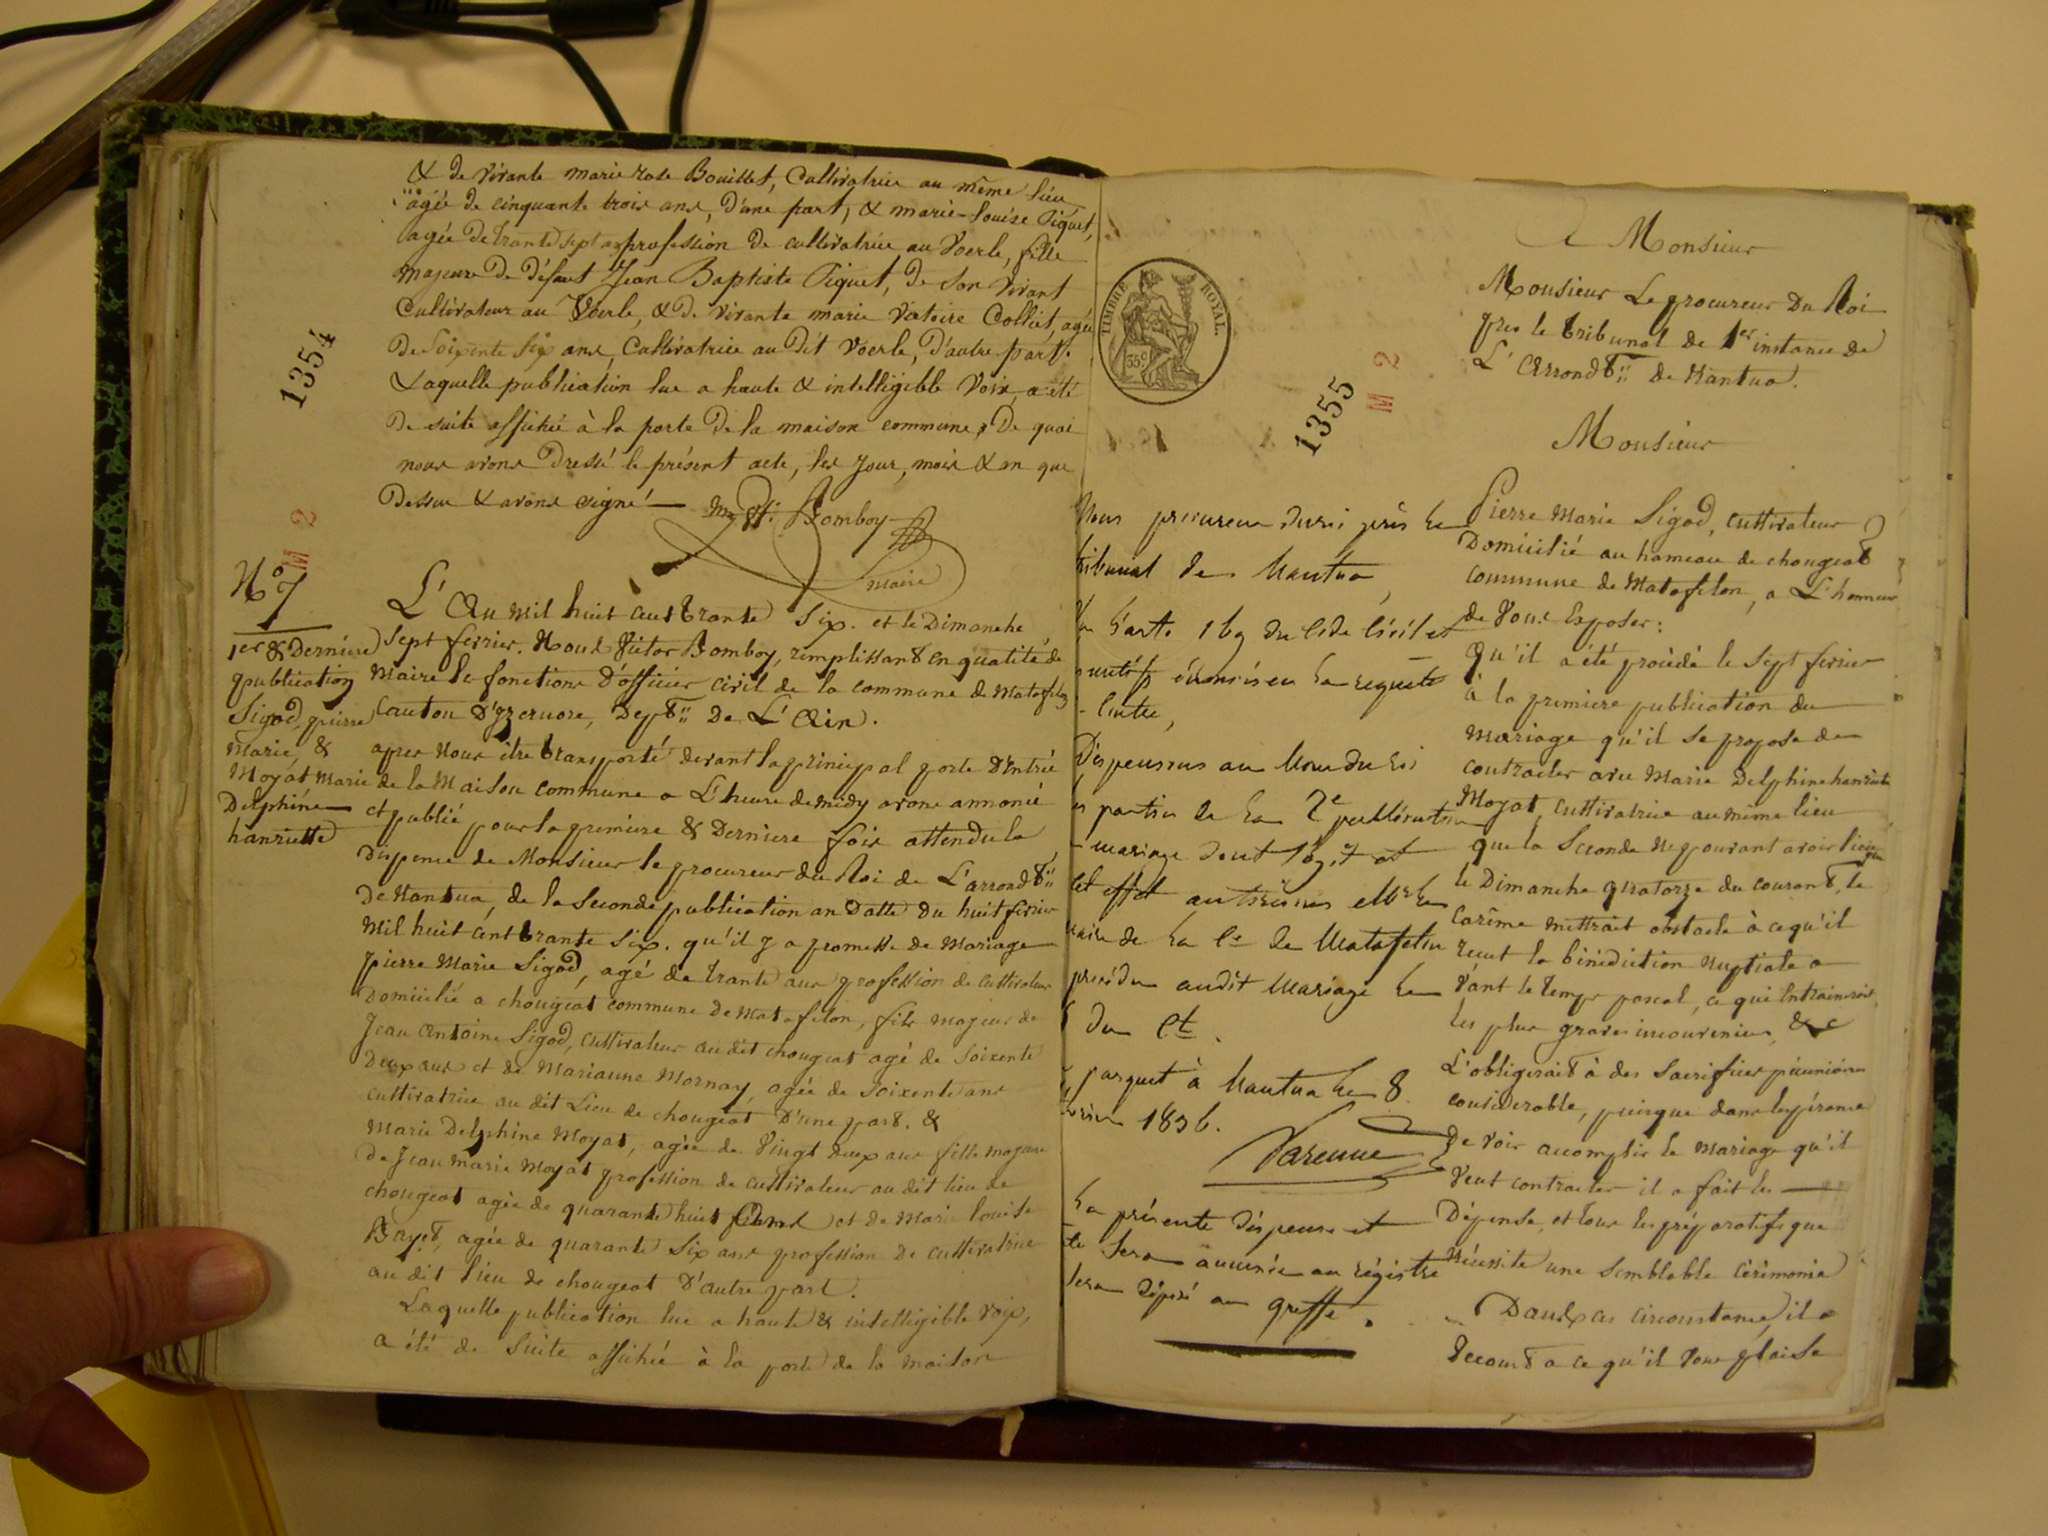 & de vivante marie rose Bouillet, Cultivatrice au même lieu
agée de cinquante trois ans, D'une part, & marie-Louise Piquet,
agée De trante sept ans profession de cultivatrice au Voerle, fille
majeure De Défunt Jean Baptiste Piquet, de Son vivant
Cultivateur au Voerle, & De vivante marie Victoire Colliet, agée
De Soixente Six ans, Cultivatrice au Dit Voerle, D'autre part.
Laquelle publication lue a haute & intelligible Voix, a été
De suite affichée à la porte De la maison commune, De quoi
nous avons Dressé le présent acte, les Jour, mois & an que
Dessus & avons signé
Bomboy
maire
1354
M 2
N° 7
1er & Derniere
publication
Sigod, pierre
Marie, &
Moyat Marie
Delphine
hanriette
L'An Mil huit cent trante Six. et le Dimanche
Sept fevrier. Nous Victor Bomboy, remplissant en qualité de
Maire les fonctions D'officier civil de la commune de Matafelon
Canton D'yzernore, Dept De L'Ain.
apres Nous être transporté devant la principal porte D'entrée
de la Maison commune a L'heure de midy avons annoncé
et publié pour la premiere & Derniere fois attendu la
Dispence de Monsieur le procureur du Roi de L'arrondt
De Nantua, de la Seconde publication an Datte du huit fevrier
Mil huit cent trante Six. qu'il y a promesse de Mariage
pierre Marie Sigod, agé de trante ans profession de cultivateur
Domicilié a chougeat commune De Matafelon, fils majeur de
Jean Antoine Sigod, cultivateur au dit chougeat agé de Soixente
Deux ans et de Marianne Mornay, agée de Soixente ans
cultivatrice au dit Lieu de chougeat D'une part. &
Marie Delphine Moyat, agée de Vingt deux ans fille majeure
De Jean Marie Moyat profession de cultivateur au dit lieu de
chougeat agée de quarante huit et de Marie louise
agée de quarante Six ans profession De cultivatrice
au dit lieu de chougeat D'autre part.
Laquelle publication lue a haute & intelligible voix,
a été de Suite affichée à la porte de la maison
TIMBRE ROYAL.
35c
1355
M 2
Nous procureur du roi près le
tribunal de Nantua,
Vu l'arte 169 du Code Civil et
motifs énoncés en la requête
Dispensons au Nom du roi
les parties de la 2e publication
mariage dont s'agit et
cet effet autorisons Mr le
maire de la Cne de Matafelon
procéder audit Mariage le
du Ct.
parquet à Nantua le 8
février 1836.
Varenne
La présente dispense et
sera annexée au régistre
sera déposé au greffe.
A Monsieur
Monsieur Le procureur Du Roi
pres le tribunal de 1er instance de
L'Arrondt de Nantua.
Monsieur
Pierre Marie Sigod, cultivateur
Domicilié au hameau de chougeat
commune de Matafelon, a L'honneur
de Vous Exposer:
Qu'il a été procédé le Sept fevrier
à la premiere publication du
Mariage qu'il Se propose de
contracter avec Marie Delphine hanriette
Moyat, cultivatrice au même lieu
que la Seconde ne pouvant avoir lieu que
le Dimanche quatorze du courant, le
Carême mettrait obstacle à ce qu'il
reçut la bénédiction Nuptiale a
vant le temps pascal, ce qui Entrainerait
les plus graves inconveniens, & c
L'obligerait à des Sacrifices pécunières
considerable, puisque dans lespérence
De voir accomplir le Mariage qu'il
Veut contracter il a fait les
Dépense, et tous les préparatifs que
Nécessite une Semblable cérémonie
Dans ces circonstance, il a
Recours a ce qu'il Vous plaise